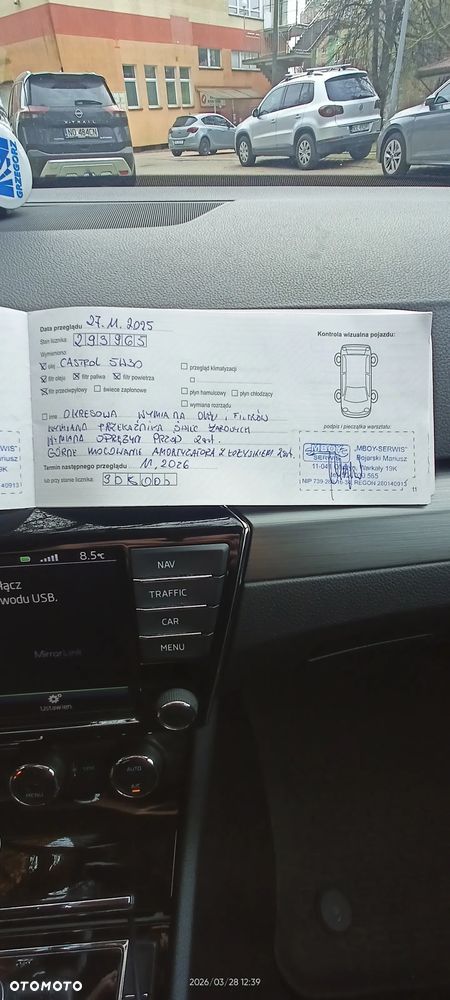 VITRAIL
ND 484CN
GRZEGORZ
Data przeglądu 27.11.2025
Kontrola wizualna pojazdu:
Stan licznika: 293965
Wymieniono:
olej CASTROL 5W30
przegląd klimatyzacji
filtr oleju filtr paliwa filtr powietrza
filtr przeciwpyłowy świece zapłonowe
płyn hamulcowy płyn chłodzący
wymiana rozrządu
inne OKRESOWA WYMIANA OLEJU I FILTRÓW
WYMIANA PRZEKAŹNIKA ŚWIEC ŻAROWYCH
podpis i pieczątka warsztatu
WYMIANA SPRĘŻYN PRZÓD 2szt.
GÓRNE MOCOWANIE AMORTYZATORA Z ŁOŻYSKIEM 2szt
Termin następnego przeglądu 11.2026
lub przy stanie licznika:
MBOY
SERWIS
"MBOY-SERWIS"
Bojarski Mariusz
REGON 280140913
11
8.5°C
wodu USB.
MirrorLink
Ustawien
NAV
TRAFFIC
CAR
MENU
MENU
AUTO
OTOMOTO
2026/03/28 12:39